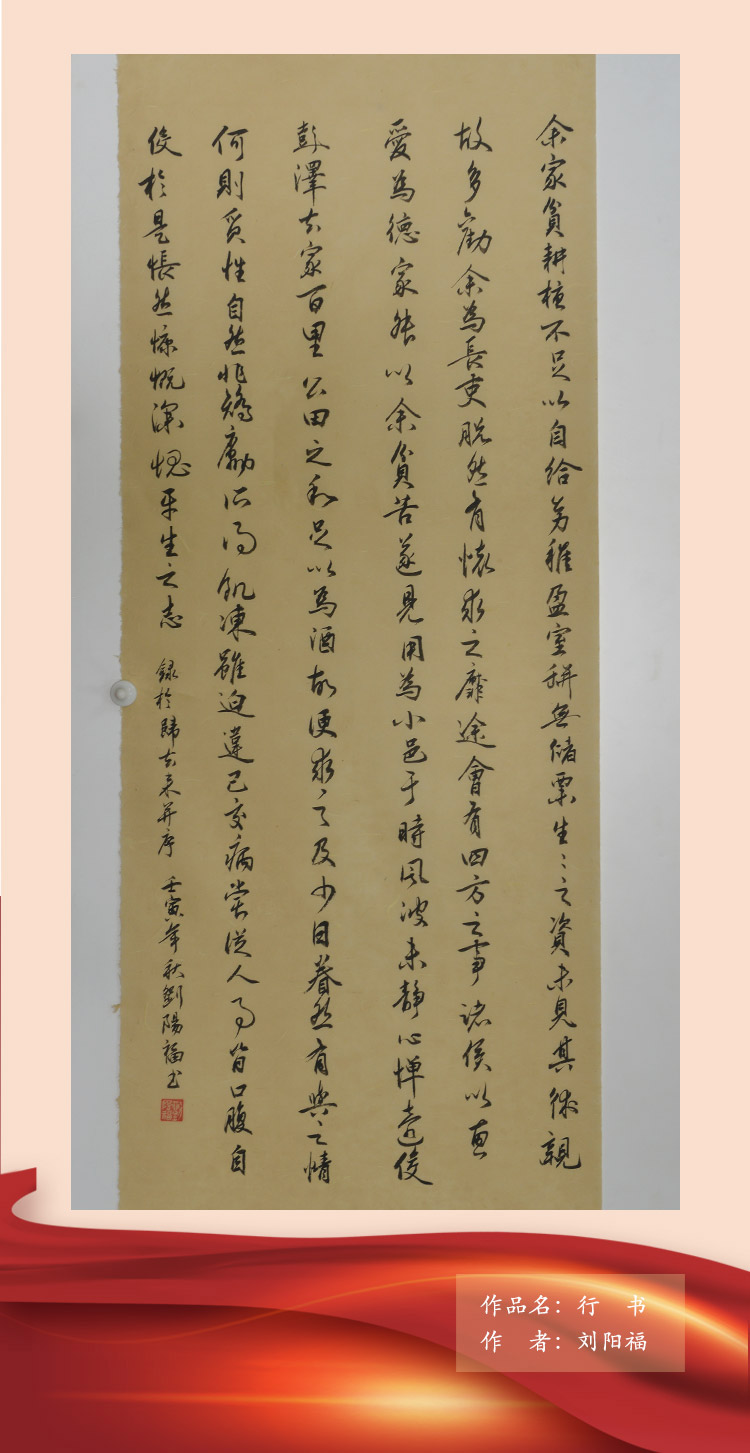 余家貧耕植不足以自給幼稚盈室缾無儲粟生〻之資未見其術親
故多勸余為長吏脫然有懷求之靡途會有四方之事諸侯以惠
愛為德家叔以余貧苦遂見用為小邑于時風波未靜心憚遠役
彭澤去家百里公田之利足以為酒故便求之及少日眷然有與之情
何則質性自然非矯勵所得飢凍雖迫違己交病嘗從人事皆口腹自
役於是悵然慷慨深愧平生之志 錄於歸去來并序 壬寅年秋劉陽福书
作品名：行 书
作 者：刘阳福